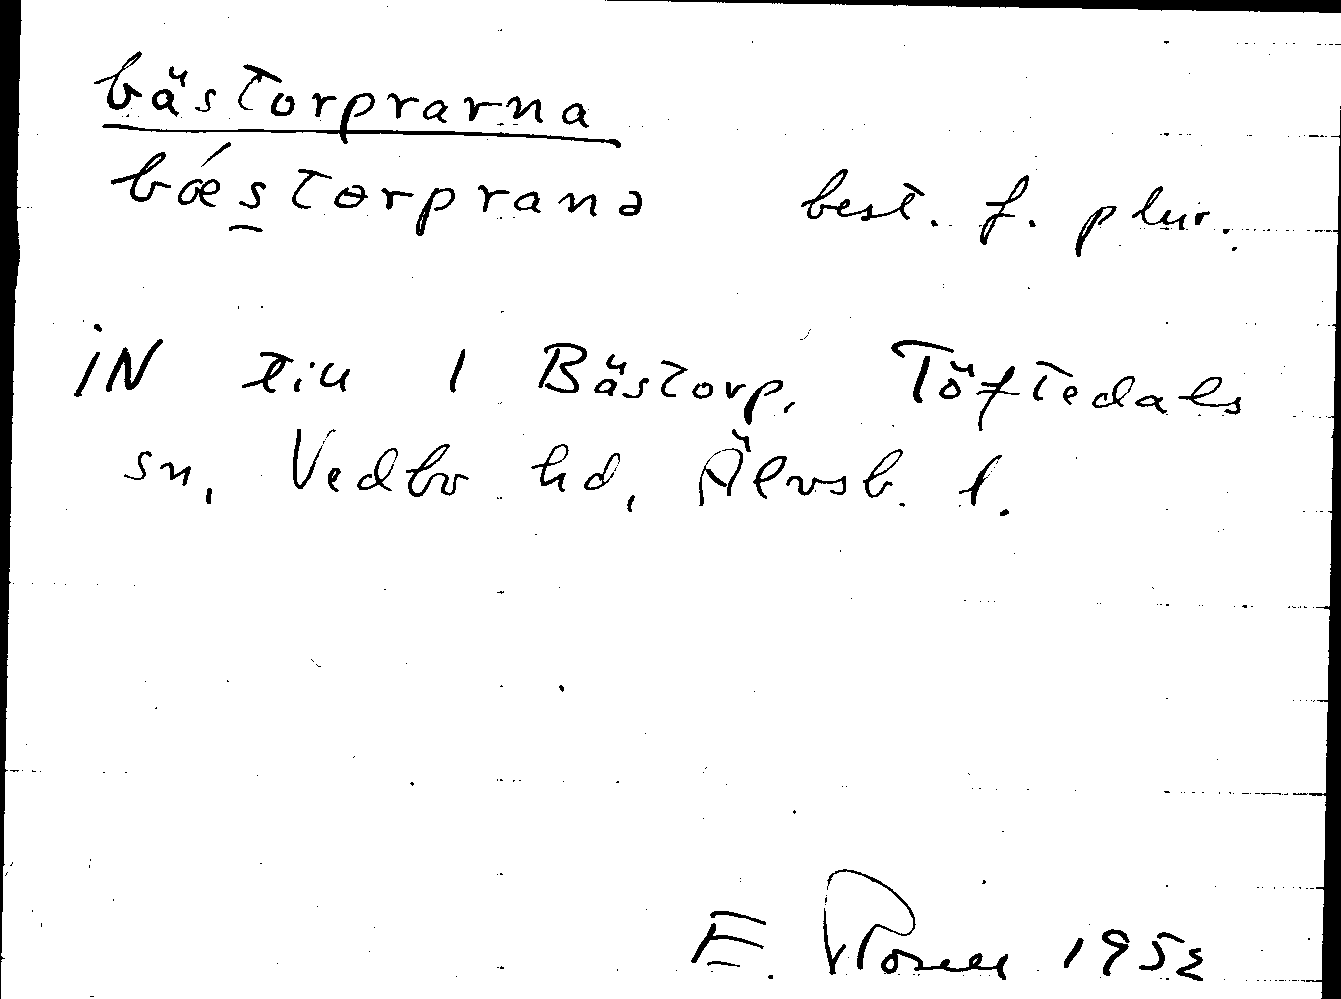 bästorprarna
bǽstorpranə best. f. plur.
iN till 1 Bästorp, Töftedals
sn, Vedbo hd, Älvsb. l.
E. 1952